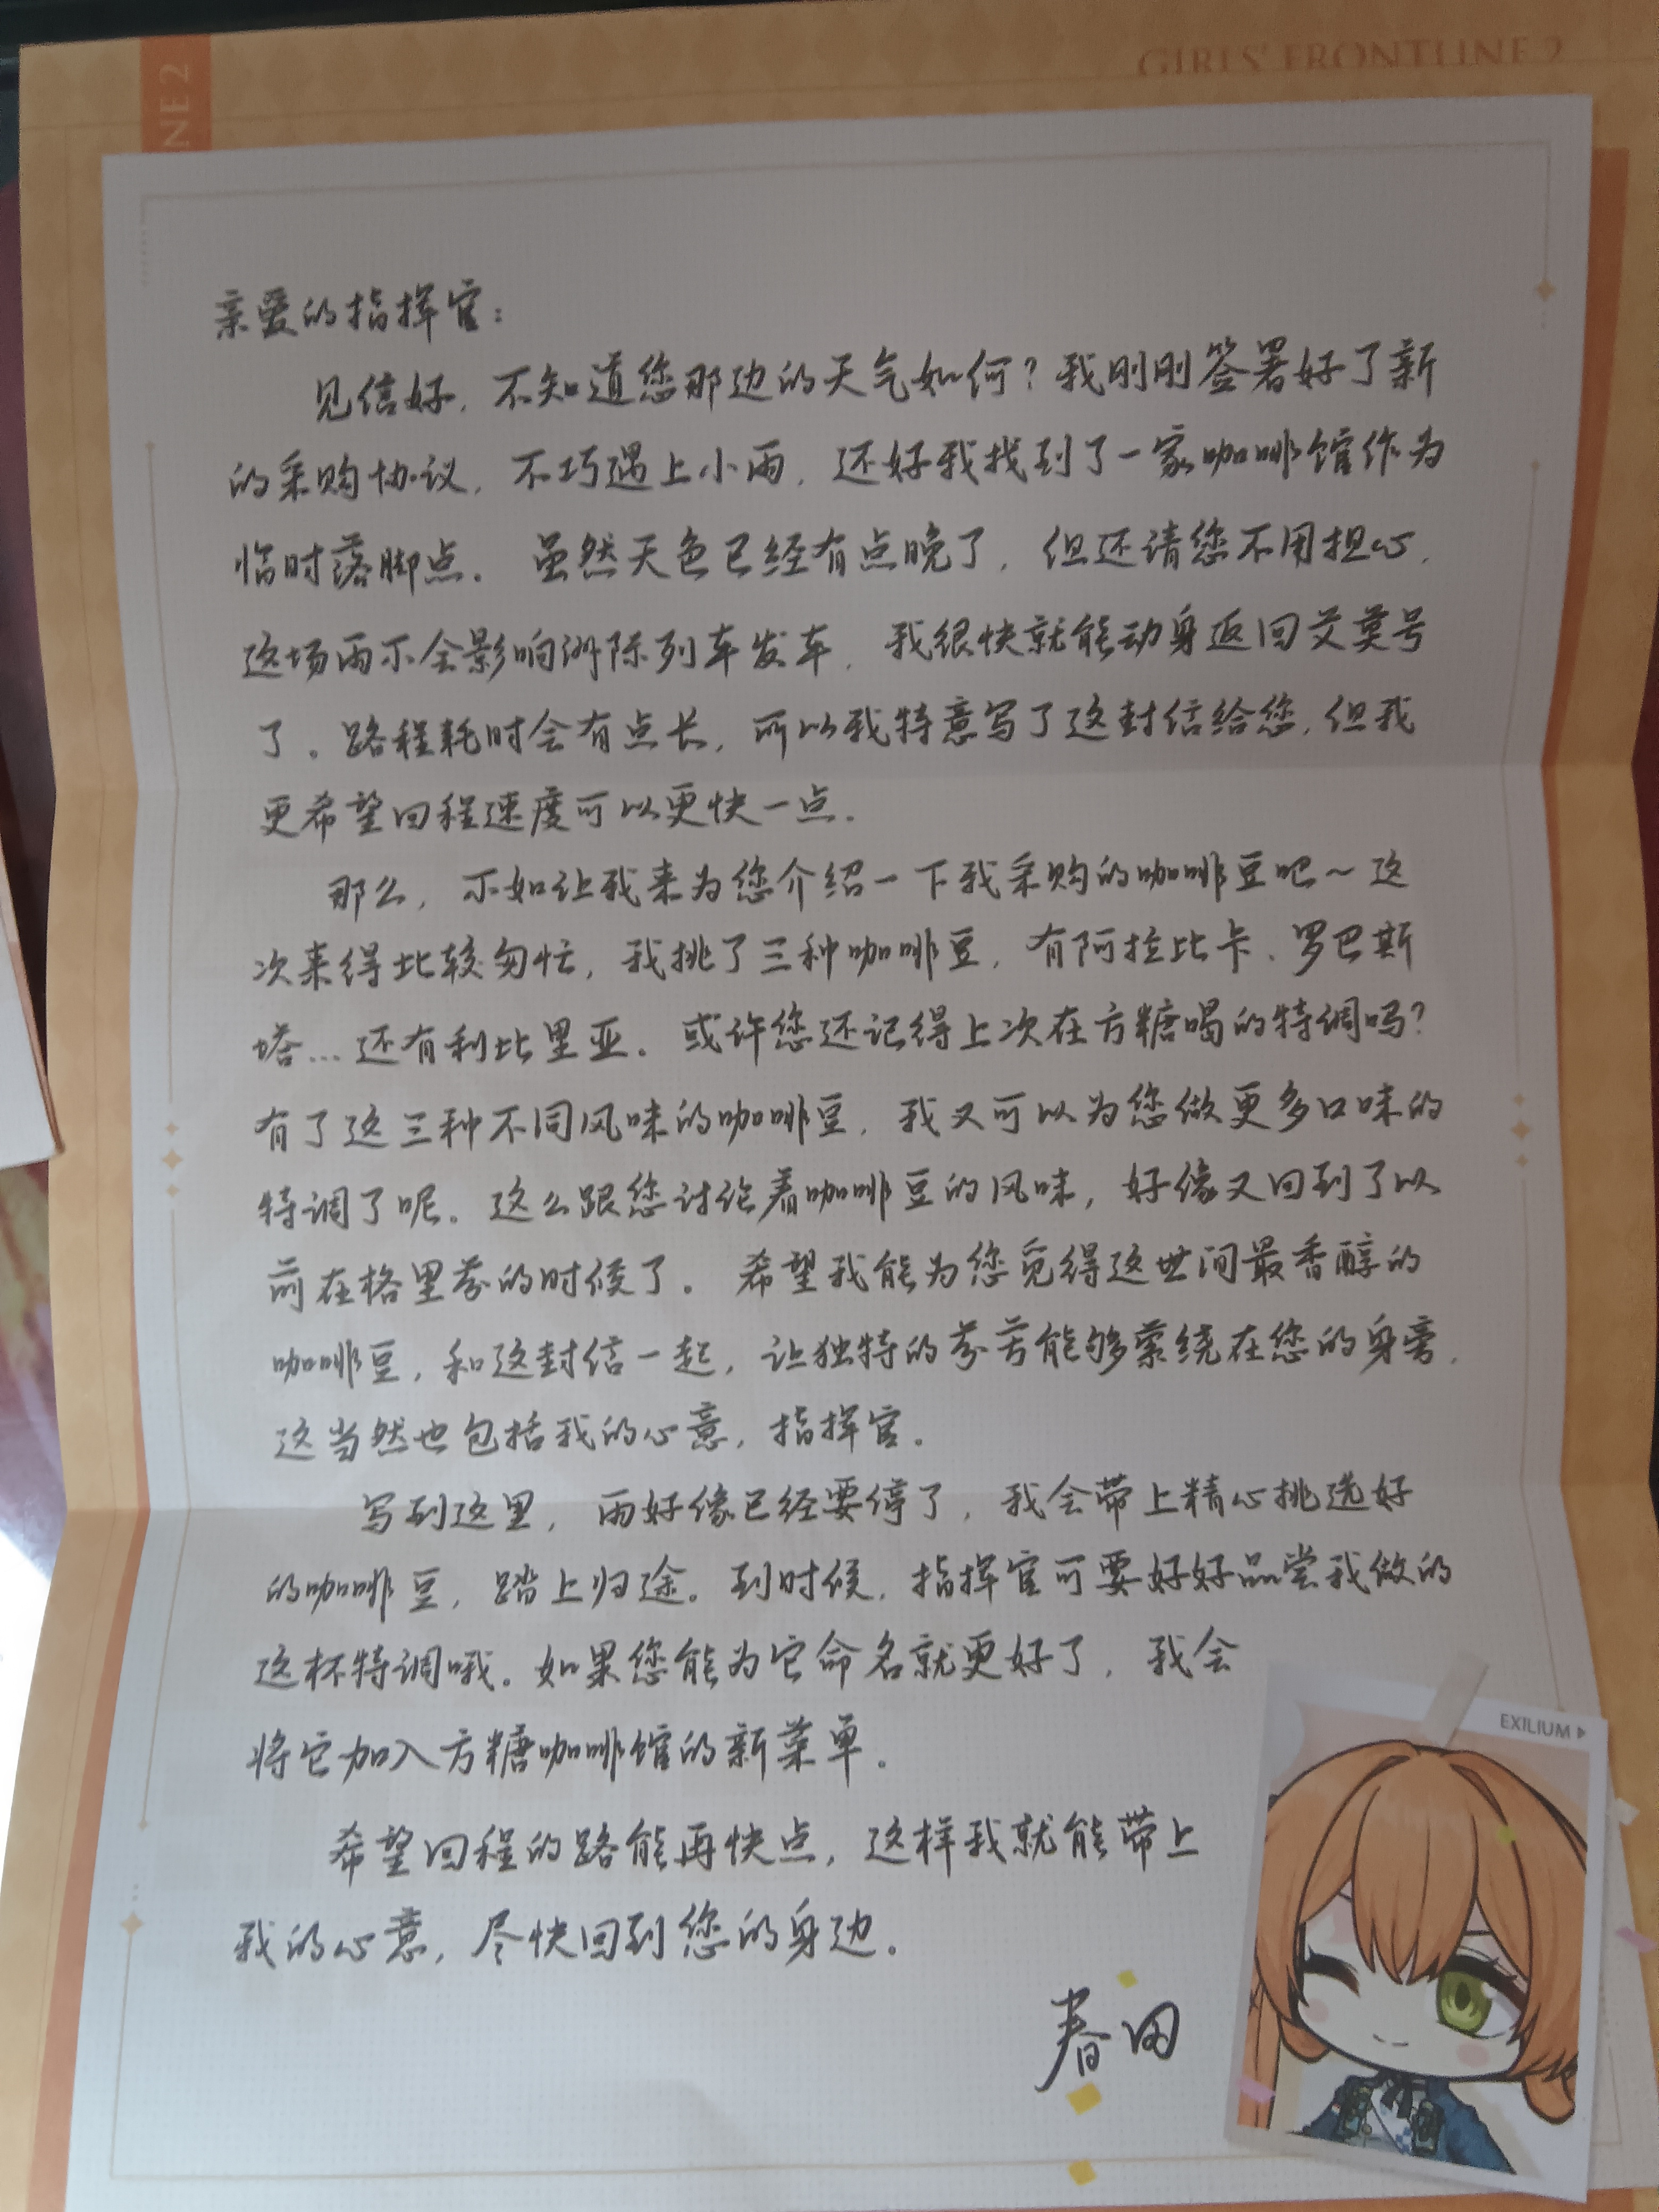 NE 2
GIRLS' FRONTLINE 2
亲爱的指挥官：
见信好，不知道您那边的天气如何？我刚刚签署好了新
的采购协议，不巧遇上小雨，还好我找到了一家咖啡馆作为
临时落脚点。虽然天色已经有点晚了，但还请您不用担心，
这场雨不会影响洲际列车发车，我很快就能动身返回艾莫号
了。路程耗时会有点长，所以我特意写了这封信给您，但我
更希望回程速度可以更快一点。
那么，不如让我来为您介绍一下我采购的咖啡豆吧～这
次来得比较匆忙，我挑了三种咖啡豆，有阿拉比卡、罗巴斯
塔…还有利比里亚。或许您还记得上次在方糖喝的特调吗？
有了这三种不同风味的咖啡豆，我又可以为您做更多口味的
特调了呢。这么跟您讨论着咖啡豆的风味，好像又回到了以
前在格里芬的时候了。希望我能为您觅得这世间最香醇的
咖啡豆，和这封信一起，让独特的芬芳能够萦绕在您的身旁，
这当然也包括我的心意，指挥官。
写到这里，雨好像已经要停了，我会带上精心挑选好
的咖啡豆，踏上归途。到时候，指挥官可要好好品尝我做的
这杯特调哦。如果您能为它命名就更好了，我会
将它加入方糖咖啡馆的新菜单。
希望回程的路能再快点，这样我就能带上
我的心意，尽快回到您的身边。
春田
EXILIUM